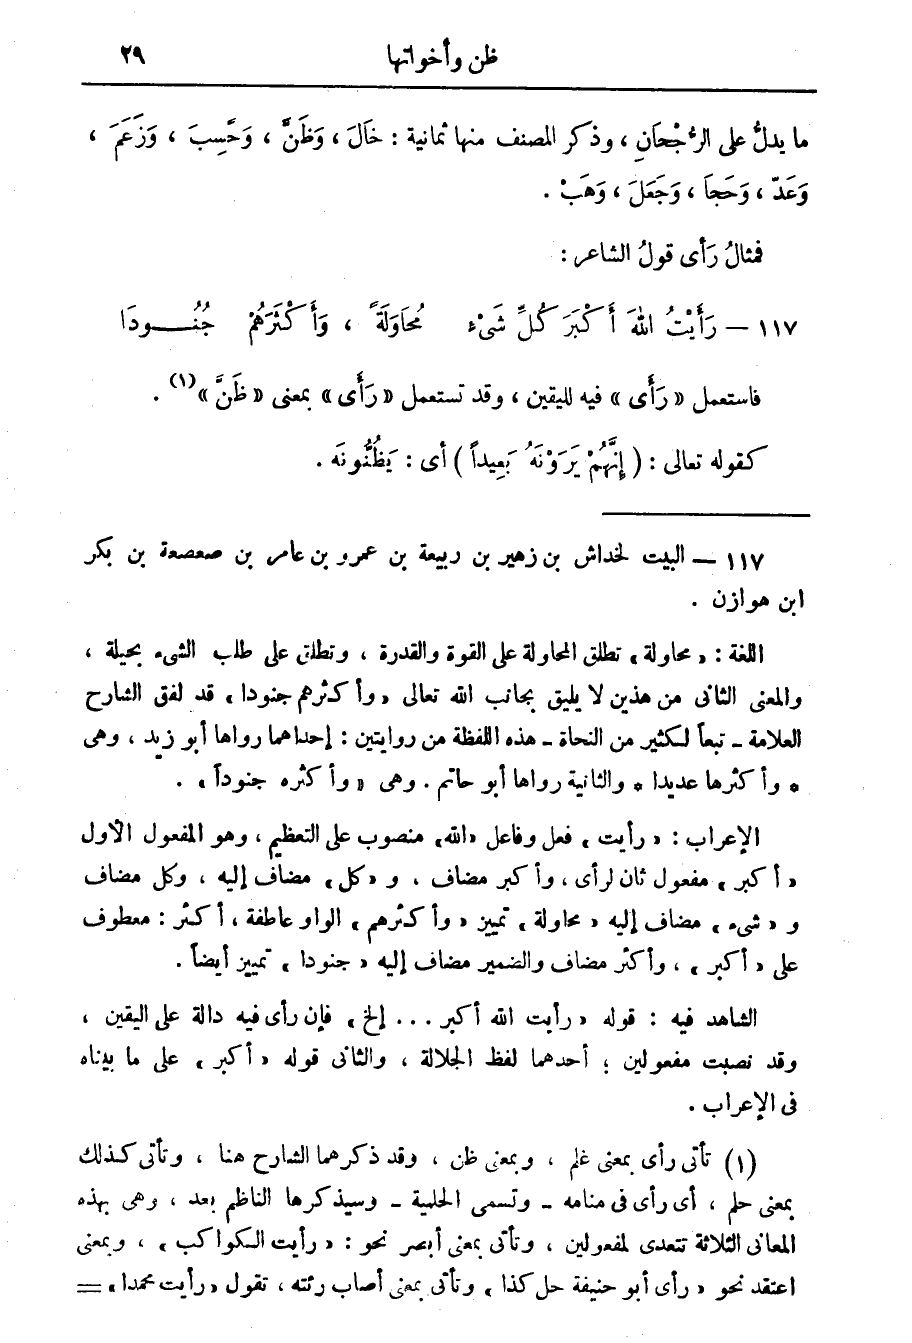 ظن وأخواتها ٢٩
ما يدلُّ على الرُّجْحَانِ ، وذكر المصنف منها ثمانية : خَالَ ، وَظَنَّ ، وَحَسِبَ ، وَزَعَمَ ،
وَعَدّ ، وَحَجَا ، وَجَعَلَ ، وَهَبْ .
فمثالُ رَأى قولُ الشاعر :
١١٧ — رَأَيْتُ اللهَ أَكْبَرَ كُلِّ شَىْءٍ مُحَاوَلَةً ، وَأَكْثَرَهُمْ جُنُـــودَا
فاستعمل « رَأَى » فيه لليقين ، وقد تستعمل « رَأَى » بمعنى « ظَنَّ » (١) .
كقوله تعالى : ( إِنَّهُمْ يَرَوْنَهُ بَعِيداً ) أى : يَظُنُّونَه .
١١٧ — البيت لخداش بن زهير بن ربيعة بن عمرو بن عامر بن صعصعة بن بكر
ابن هوازن .
اللغة : « محاولة » تطلق المحاولة على القوة والقدرة ، وتطلق على طلب الشىء بحيلة ،
والمعنى الثانى من هذين لا يليق بجانب الله تعالى « وأكثرهم جنودا » قد لفق الشارح
العلامة ـ تبعاً لكثير من النحاة ـ هذه اللفظة من روايتين : إحداهما رواها أبو زيد ، وهى
* وأكثرها عديدا * والثانية رواها أبو حاتم . وهى « وأكثره جنوداً » .
الإعراب : « رأيت » فعل وفاعل « الله » منصوب على التعظيم ، وهو المفعول الأول
« أكبر » مفعول ثان لرأى ، وأكبر مضاف ، و « كل » مضاف إليه ، وكل مضاف
و « شىء » مضاف إليه « محاولة » تمييز « وأكثرهم » الواو عاطفة ، أكثر : معطوف
على « أكبر » ، وأكثر مضاف والضمير مضاف إليه « جنودا » تمييز أيضاً .
الشاهد فيه : قوله « رأيت الله أكبر ... إلخ » فإن رأى فيه دالة على اليقين ،
وقد نصبت مفعولين ؛ أحدهما لفظ الجلالة ، والثانى قوله « أكبر » على ما بيناه
فى الإعراب .
(١) تأتى رأى بمعنى علم ، وبمعنى ظن ، وقد ذكرهما الشارح هنا ، وتأتى كذلك
بمعنى حلم ، أى رأى فى منامه ـ وتسمى الحلمية ـ وسيذكرها الناظم بعد ، وهى بهذه
المعانى الثلاثة تتعدى لمفعولين ، وتأتى بمعنى أبصر نحو : « رأيت الكواكب » ، وبمعنى
اعتقد نحو « رأى أبو حنيفة حل كذا » وتأتى بمعنى أصاب رئته ، تقول « رأيت محمدا » =